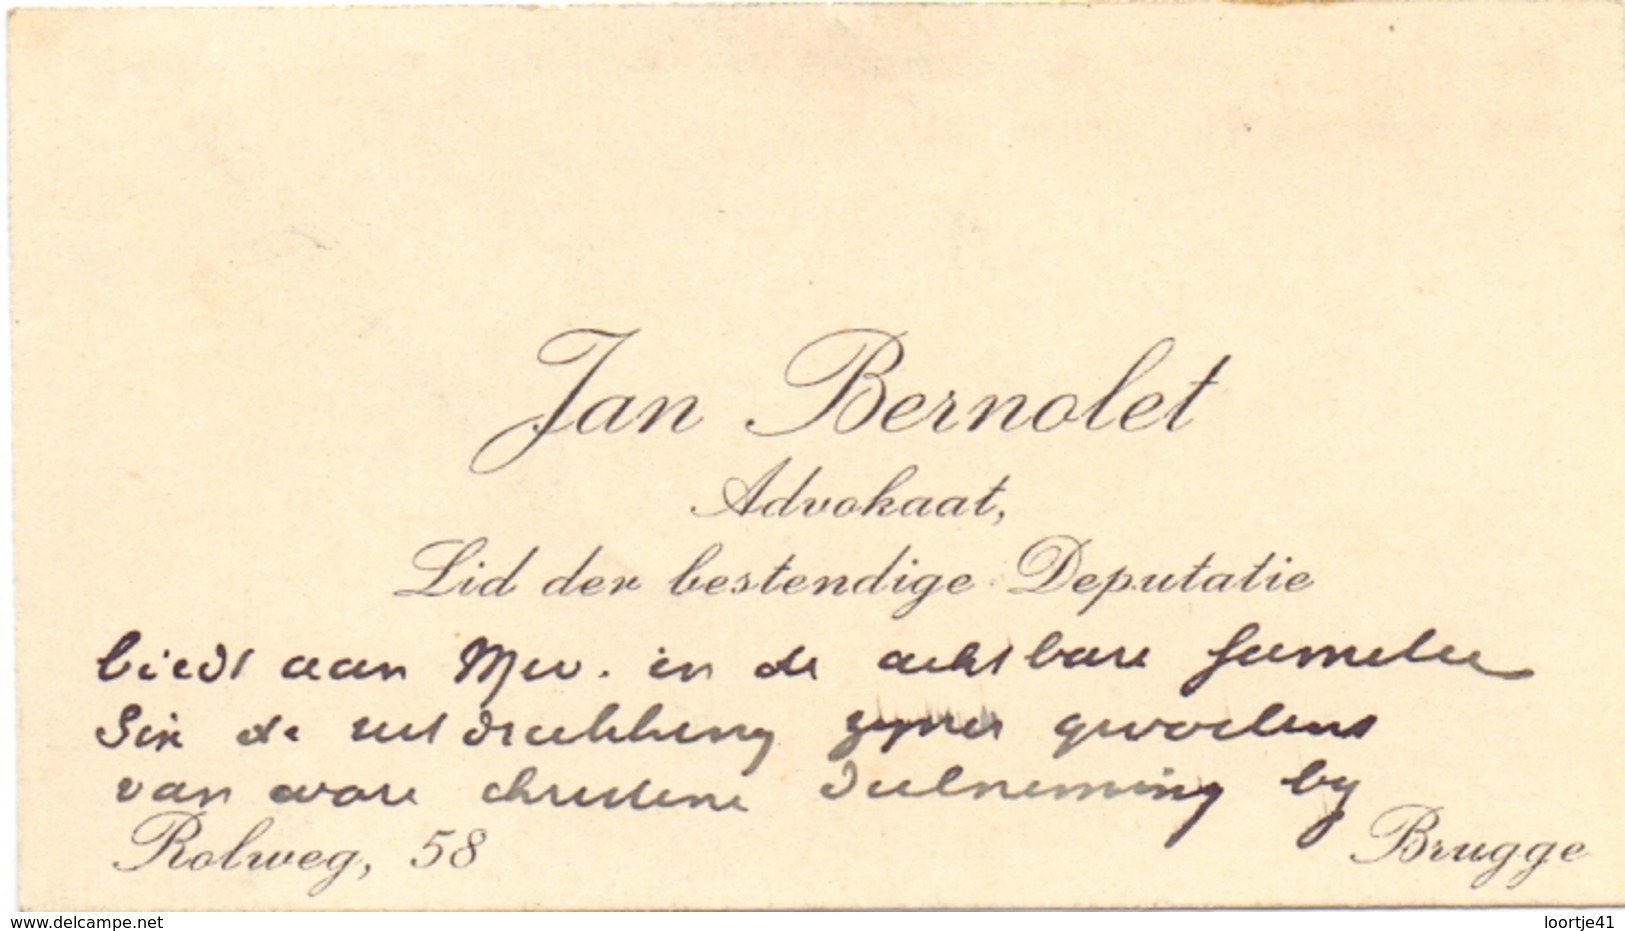 Jan Bernolet
Advokaat,
Lid der bestendige Deputatie
biedt aan Mev. en de achtbare familie
Six de uitdrukking zyner gevoelens
van ware christene deelneming by
Rolweg, 58 Brugge
www.delcampe.net loortje41